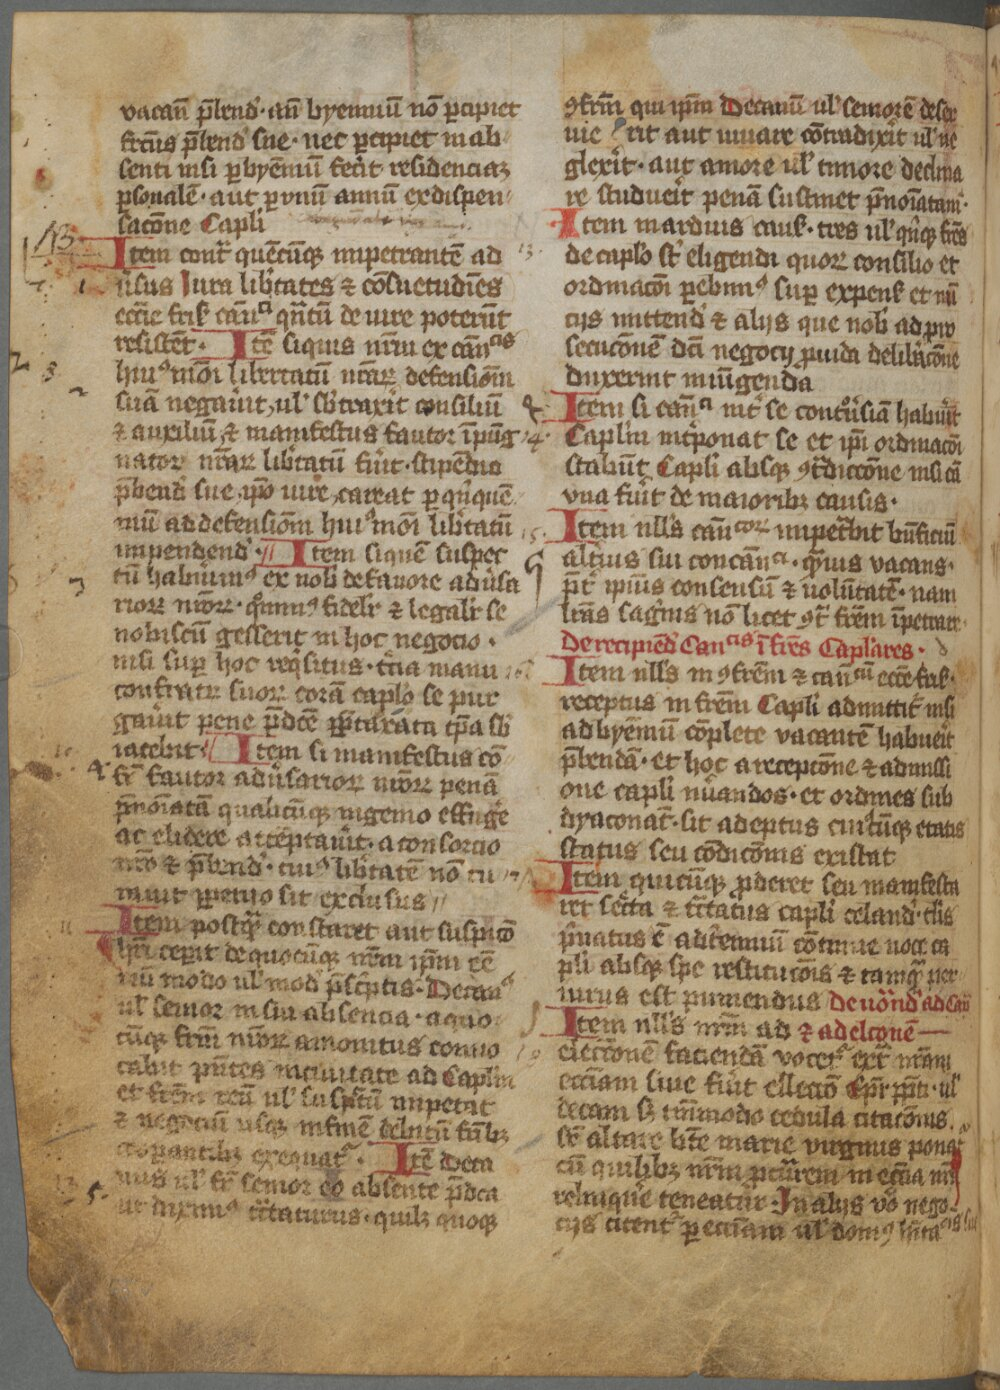 vacan̄ p̄bend᷒· an̄ byenniū nō ꝑcipiet
fructus p̄bend᷒ sue· nec ꝑcipiet in ab
senti nisi ꝑ byēniū fecit residenciaꝫ
ꝑsonalē· aut ꝑ vnū annū ex dispen
sacōne Capli
Item contͬ quēcūqꝫ inpetrantē ad
ūsus Iura lib̄tates ⁊ cōsuetudīes
ecc̄ie
qn̄tū de iure poterūt
resistēt· Itē siquis nrm̄ ex can̄cis
huiꝰmōi libertatū nrāꝝ defensiōm
suā negaūit, ul᷒ sb̄traxīt consiliū
⁊ auxiliū, ⁊ manifestus fautor īpūg
natoꝝ nrāꝝ lib̄tatū fūit· stipendio
p̄bend᷒ sue ip̄o iure careat ꝑ qn̄quē
niū ad defensiōm huiꝰmōi lib̄tatū
inpendend᷒· Item si quē suspec
tū habūimꝰ ex nob̄ de fauore adūsa
rioꝝ nr̄oꝝ· qm̄inꝰ fidelr̄ ⁊ legalr̄ se
nobiscū gesserit in hoc negocio·
nisi suꝑ hoc reqͥsitus· t̄cia manu
confratrū suoꝝ corā caplo se pur
gaūit pene p̄dcē
sb̄
iacebit· Item si manifestus cō
fr̄ fautor adūsarioꝝ nr̄oꝝ penā
p̄noīatā qualicūqꝫ ingenio effuḡe
ac elidere attēptaūit· a consorcio
nr̄o ⁊ p̄bend᷒· cuiꝰ lib̄tatē nō tu
ꝑpetuo sit exclusus
Item postqͣ constaret aut suspicō
hr̄i ceperit de quocūqꝫ nrm̄ ip̄m
modo ul᷒ mod᷒ p̄sc̄ptis· Decanꝰ
ul᷒ senior in sui absencia· a quo
cūqꝫ frm̄ nr̄oꝝ amonitus conuo
cabit p̄ntes in ciuitate ad Caplm̄
et frēm reū ul᷒ suspc̄tū inpetat
⁊ negociū usqꝫ in finē debitū
exequatᷣ· Itē Deca
nus ul᷒ fr̄ senior eo absente p̄dca
ut diximꝰ tc̄taturus· quilꝫ quoqꝫ
ꝯfrm̄ qui ip̄m Decanū ul᷒ seniorē deser
uie rit aut iuuare cōtradixīt ul᷒ ne
glexīt· aut amore ul᷒ timore declina
re studueīt penā sustinet p̄noīatam·
Item mardius cauß· tres ul᷒ qn̄qꝫ frēs
de caplo st᷒ eligendi quoꝝ consilio et
ordinacōi ꝑebimꝰ suꝑ expenß et nū
cijs mittend᷒ ⁊ alijs que nob̄ ad pro
secucōnē dc̄i negocij ꝓuida delibacōne
duxerint iniūgenda
Item si can̄ci int᷒ se contūsiā habūīt
Caplm̄ int᷒ponat se et ip̄i ordinacōi
stabūt Capli absqꝫ ꝯt̄diccōne nisi cā
vna fūit de maioribꝫ causis·
Item nll᷒s can̄coꝝ inpet̄bit bn̄ficiū
alt᷒ius sui concan̄ci· qͣm̄ius vacans·
p̄t᷒ ip̄ius consensū ⁊ uolūtatē· nam
lrās
nō licet ꝯt͛ frēm īpetrare·
De recipiēd᷒ Can̄cis ī frēs Caplares·
Item nll᷒s in ꝯfrēm ⁊ can̄cū
receptus in frēm Capli admittit᷒ nisi
ad byēniū cōplete vacantē habueīt
p̄bendā· et hoc a recepcōne ⁊ admissi
one capli nūandos· et ordines sub
dyaconat᷒· sit adeptus cuiꝰcūqꝫ etatis
status seu cōdicōnis existat
Item quicūqꝫ ꝓderet seu manifesta
ret sec̄ta ⁊ tc̄tatus capli celand᷒·
p̄uatus ē ad
cōtinue uoce ca
pli absqꝫ spe restitucōis ⁊ tamqͣ per
iurus est puniendus De uōnd᷒ ad Cap̄
Item nll᷒s nrm̄ ad ⁊ ad elcōnē
eleccōnē faciendā vocetᷣ extͣ nrām
ecc̄iam siue fūit elleccō Ep̄i
ul᷒
decani sꝫ tm̄modo cedula citacōnis
suꝑ altare bt̄e marie virginis ponatᷣ
cū quilibꝫ nrm̄ ꝓcūrem in ecc̄ia nr̄a
relinquē teneatur· In alijs vō nego
cijs citentᷣ ꝑ ecc̄iam ul᷒ domꝰ